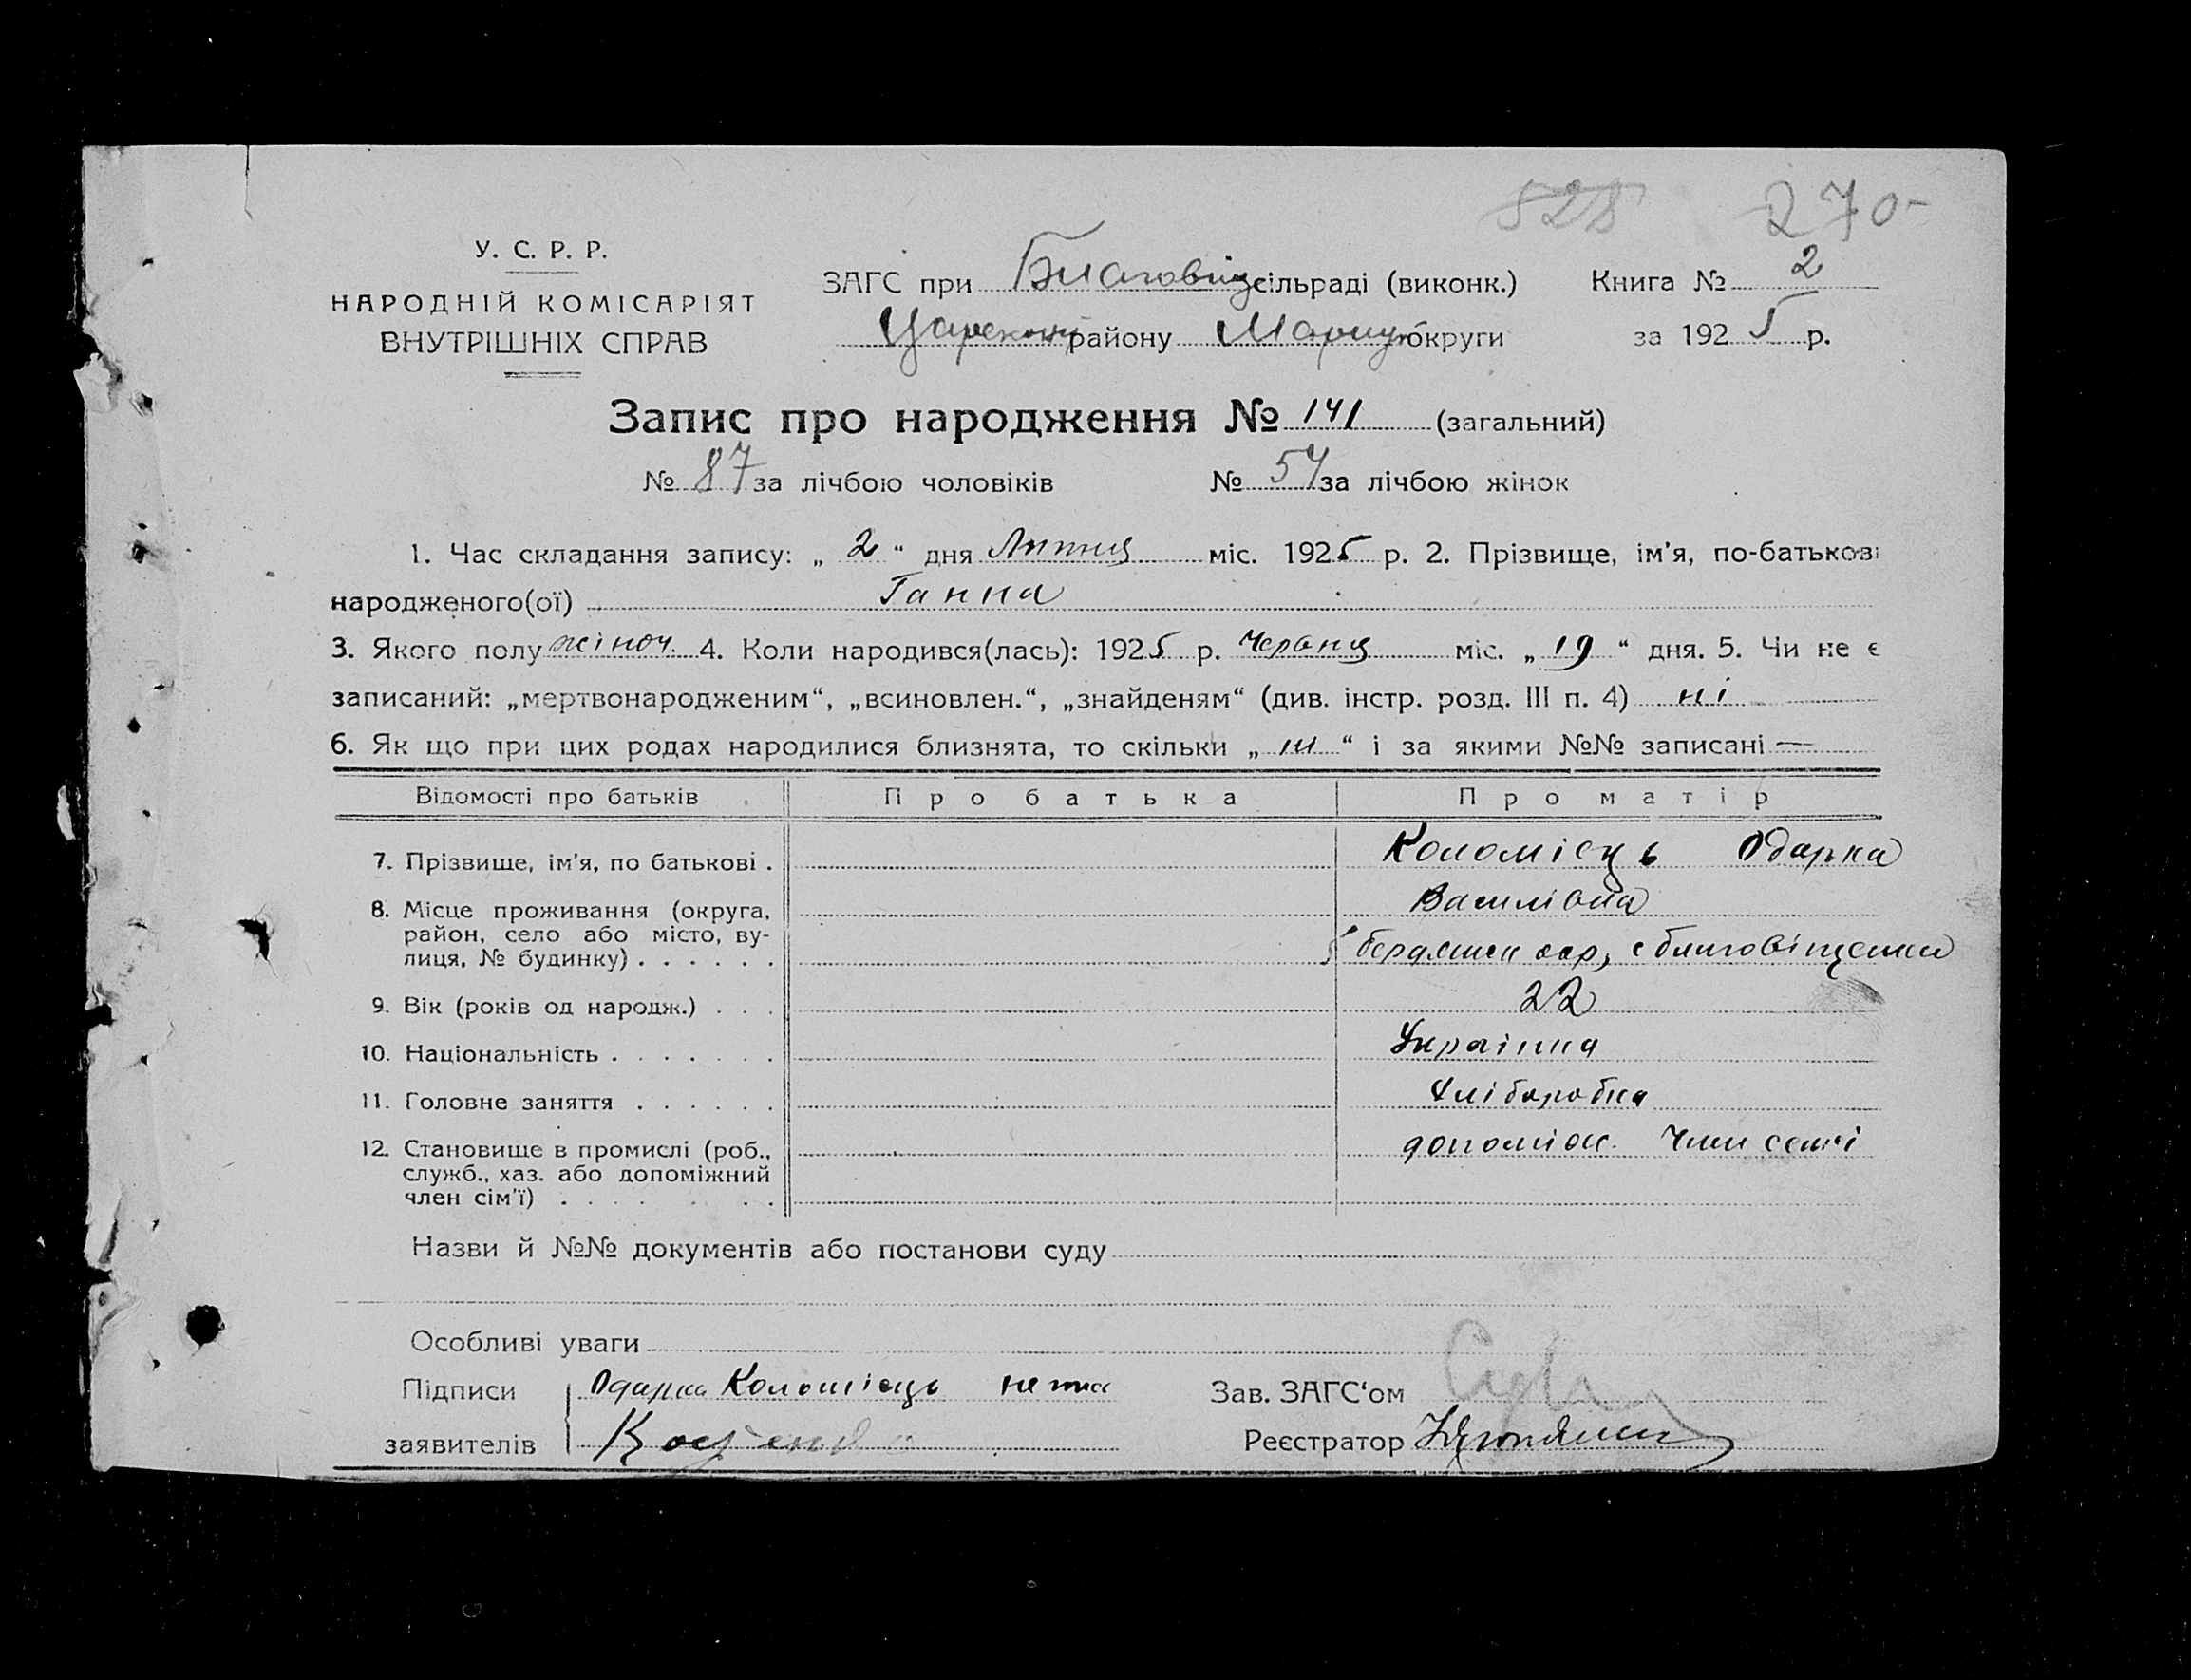 528 270-
У. С. Р. Р.
НАРОДНІЙ КОМІСАРІЯТ
ВНУТРІШНІХ СПРАВ
ЗАГС при Благовіщ сільраді (виконк.) Книга № 2
Царекон району Маріуп округи за 1925 р.
Запис про народження № 141 (загальний)
№ 87 за лічбою чоловіків № 54 за лічбою жінок
1. Час складання запису: „ 2 “ дня Липця міс. 1925 р. 2. Прізвище, ім'я, по-батькові
народженого(ої) Ганна
3. Якого полу жіноч. 4. Коли народився(лась): 1925 р. Червня міс. „ 19 “ дня. 5. Чи не є
записаний: „мертвонародженим“, „всиновлен.“, „знайденям“ (див. інстр. розд. III п. 4) ні
6. Як що при цих родах народилися близнята, то скільки „ “ і за якими №№ записані —
Відомості про батьків Про батька Про матір
7. Прізвище, ім'я, по батькові . Коломієць Одарка
8. Місце проживання (округа, Василівна
район, село або місто, ву-
лиця, № будинку) . . . . . . окр, с благовіщенки
9. Вік (років од народж.) . . . 22
10. Національність . . . . . . . Українка
11. Головне заняття . . . . . . Хліборобка
12. Становище в промислі (роб., допоміж. Член семі
служб., хаз. або допоміжний
член сім'ї) . . . . . . .
Назви й №№ документів або постанови суду
Особливі уваги
Підписи Одарка Коломієць Зав. ЗАГС‘ом
заявителів Реєстратор